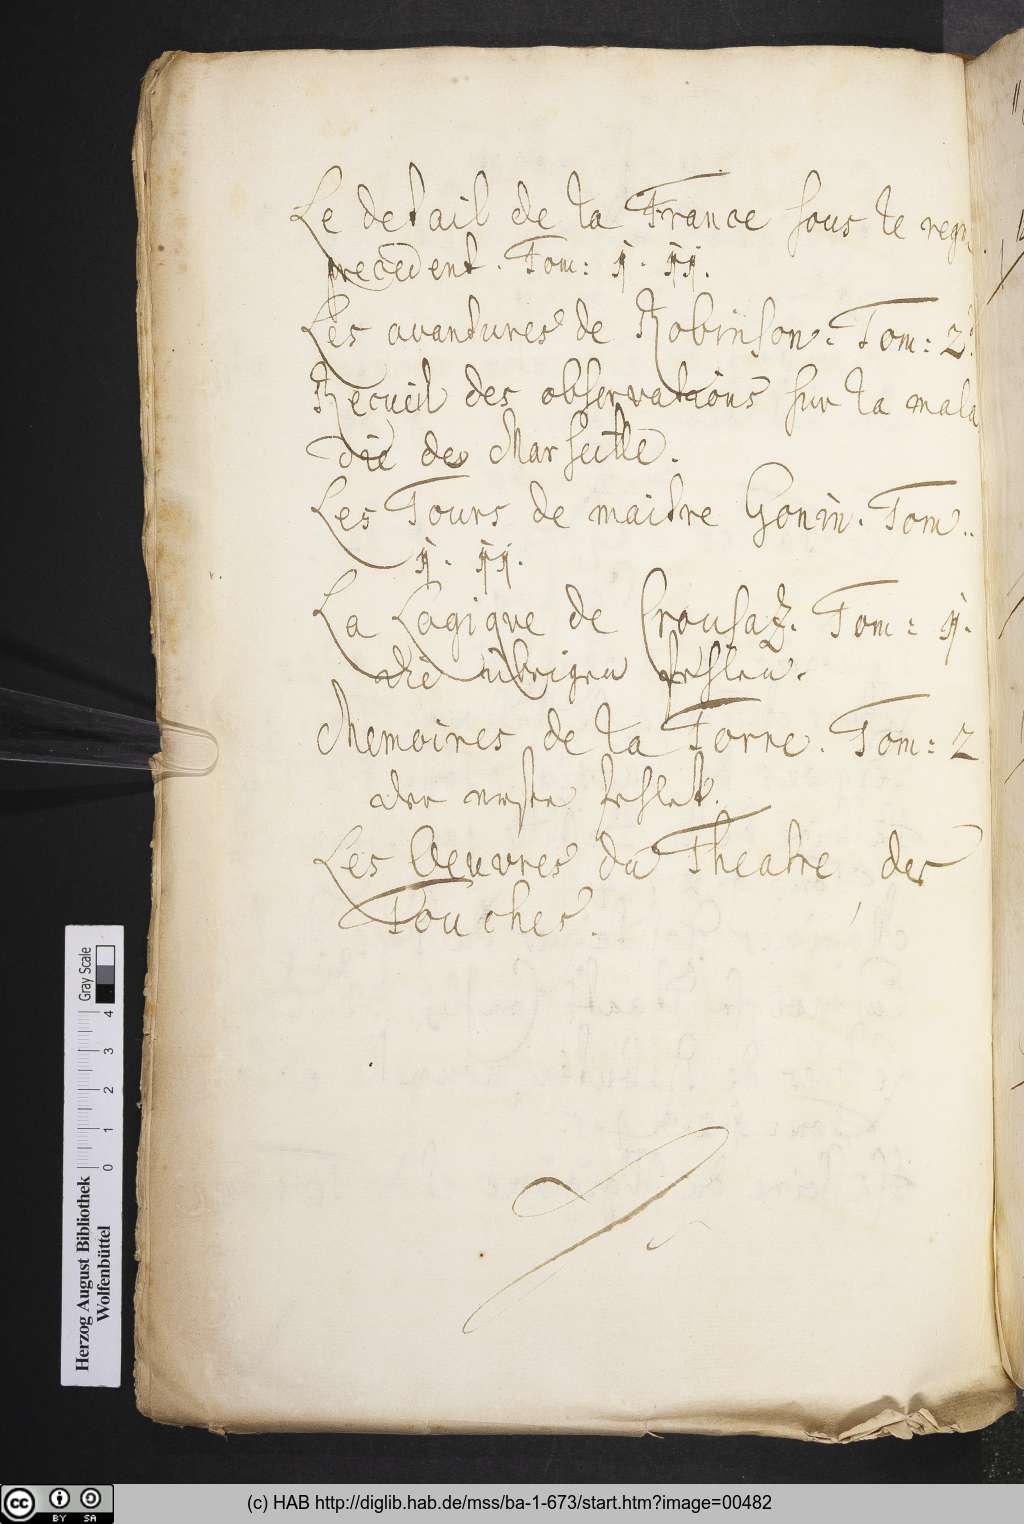 Le detail de la France sous le regn
precedent. Tom: I. II.
Les avantures de Robinson. Tom: 2.
Recueil des observations sur la mala
die de Marseille.
Les Tours de maitre Gonin. Tom..
I. II.
La Lagique de Crousaz. Tom: I.
die übrigen fehlen.
Memoires de la Torre. Tom: 2
der erste fehlet.
Les Oeuvres du Theatre, des
Touches.
Gray Scale
0 1 2 3 4
Herzog August Bibliothek
Wolfenbüttel
(c) HAB http://diglib.hab.de/mss/ba-1-673/start.htm?image=00482
cc BY SA